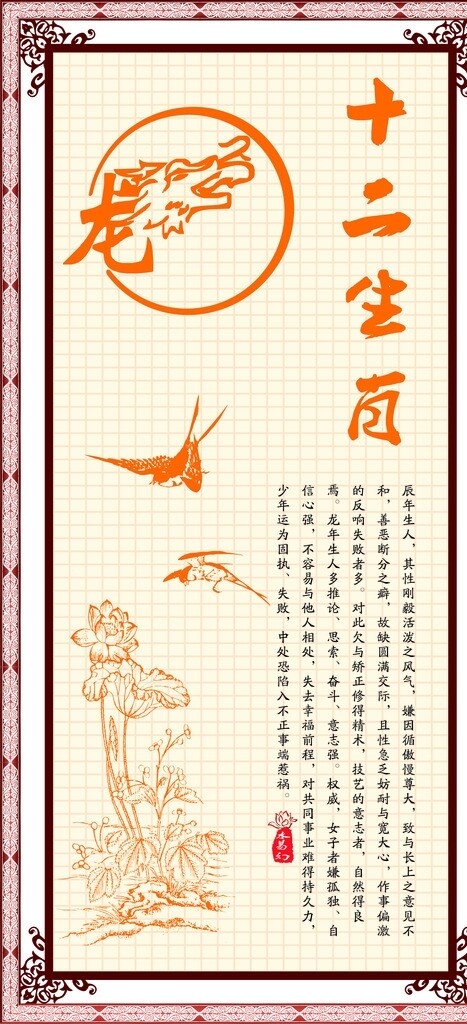 十二生肖
龙
辰年生人，其性刚毅活泼之风气，嫌因循傲慢尊大，致与长上之意见不
和，善恶断分之癖，故缺圆满交际，且性急乏妨耐与宽大心，作事偏激
的反响失败者多。对此欠与矫正修得精术，技艺的意志者，自然得良
焉。龙年生人多推论、思索、奋斗、意志强。权威，女子者嫌孤独、自
信心强，不容易与他人相处，失去幸福前程，对共同事业难得持久力，
少年运为固执、失败，中处恐陷入不正事端惹祸。